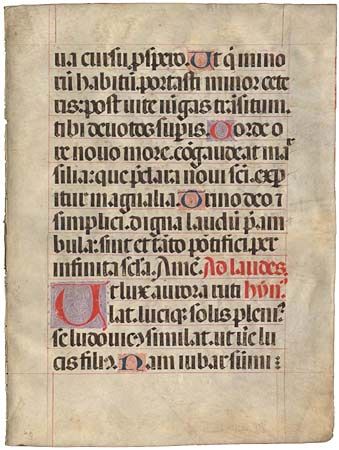 ua cursu ꝓspero. Ut qͥ mino
rū habitū. portasti minor cete
ris: post uite uigas trāsitum.
tibi deuotos suꝑis. Corde o
re nouo more. cōgaudeat maͬ
silia: que p̄clara noui sc̄i. exp
itur magnalia. Trino deo i
simplici. digna laudū p̄am
bula: sint et tāto pōtifici. per
infinita sc̄la. Amē. Ad laudes.
Ut lux aurora ruti hȳn.
lat. lucisqꝫ solis pleni
se ludouicꝰ similat. ut ue lu
cis filiꝰ. Nam iubar sūmi :